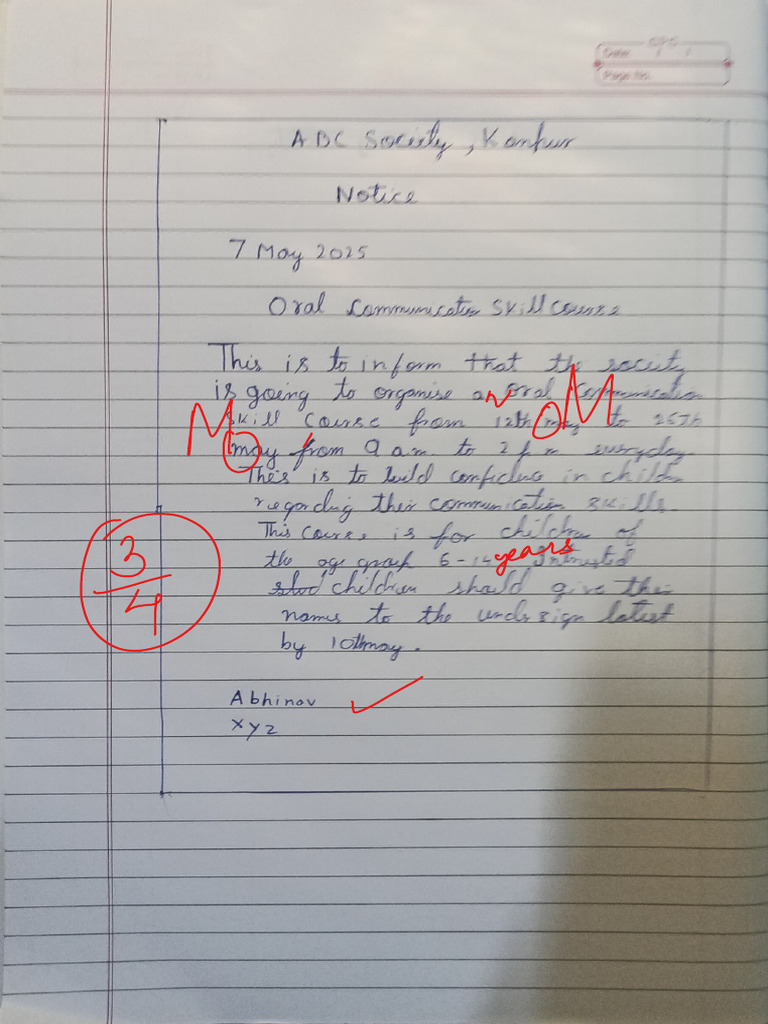 Date: 
Page No.
ABC Society, Kanpur
Notice
7 May 2025
Oral Communication Skill Course
This is to inform that the society
is going to organise an Oral Communication
M M
Skill Course from 12th may to 25th
may from 9 a.m. to 2 p.m everyday.
This is to build confidence in children
regarding their communication skills.
This course is for children of
the age group 6-14 years Intrested
children should give their
names to the undersign latest
by 10th may.
3/4
Abhinav
xyz